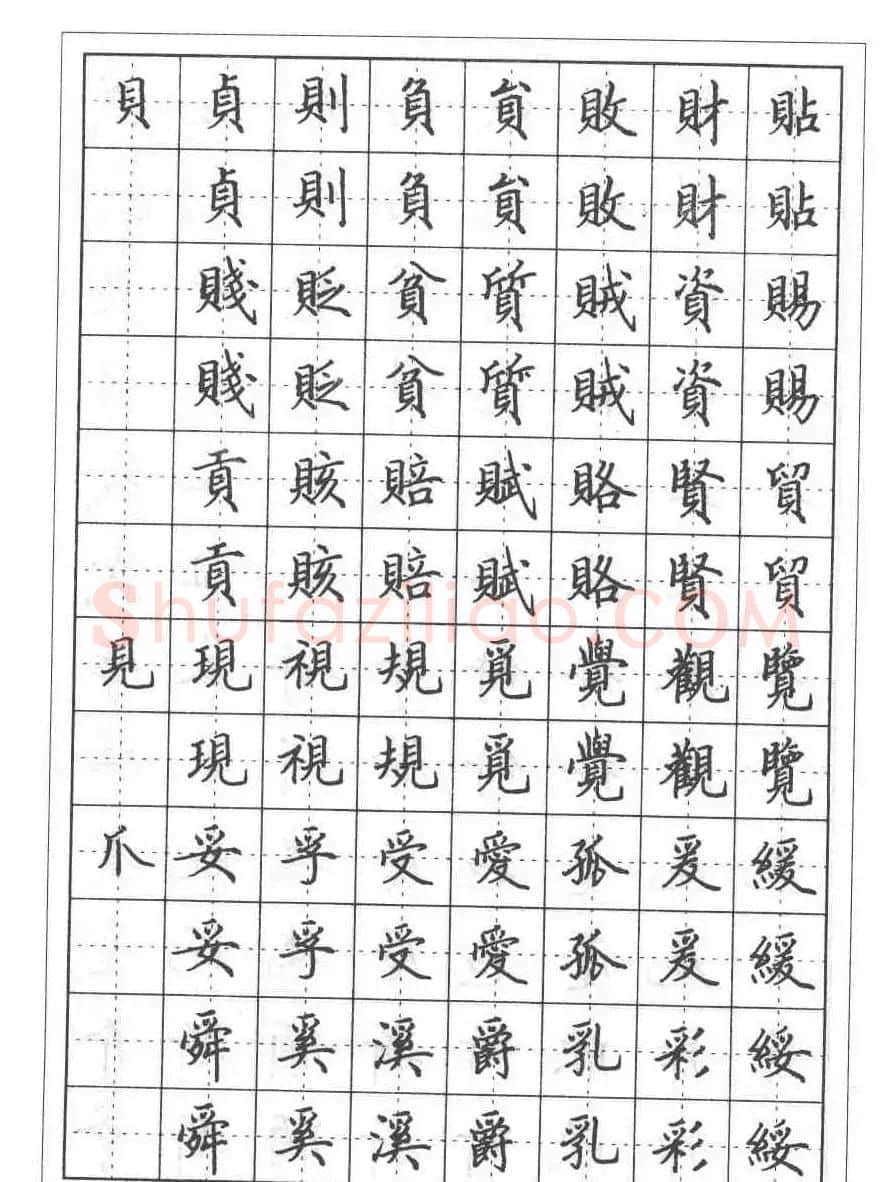 貝貞則負貟敗財貼
貞則負貟敗財貼
賤貶貧質賊資賜
賤貶貧質賊資賜
貢賅賠賦賂賢貿
貢賅賠賦賂賢貿
見現視規覓覺觀覽
現視規覓覺觀覽
爪妥孚受愛孤爰緩
妥孚受愛孤爰緩
舜奚溪爵乳彩綏
舜奚溪爵乳彩綏
Shufaziliao.COM